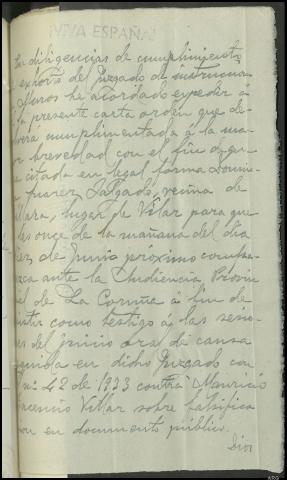 ¡VIVA ESPAÑA!
En diligencias de cumplimiento
exhorto del Juzgado de instruccion
Muros he acordado expedir á
la presente carta orden que de-
verá cumplimentada á la ma-
or brevedad con el fin de que
e citada en legal forma
Juarez Salgado, vecina de
lugar de Vilar para que
las once de la mañana del dia
de Junio próximo compa-
rezca ante la Audiencia Provin-
al de La Coruña á fin de
como testigo á las sesio-
es del juicio oral de causa
eguida en dicho Juzgado con
nº 42 de 1933 contra Mauricio
Villar sobre falsifica
ion en documento público.
Dios